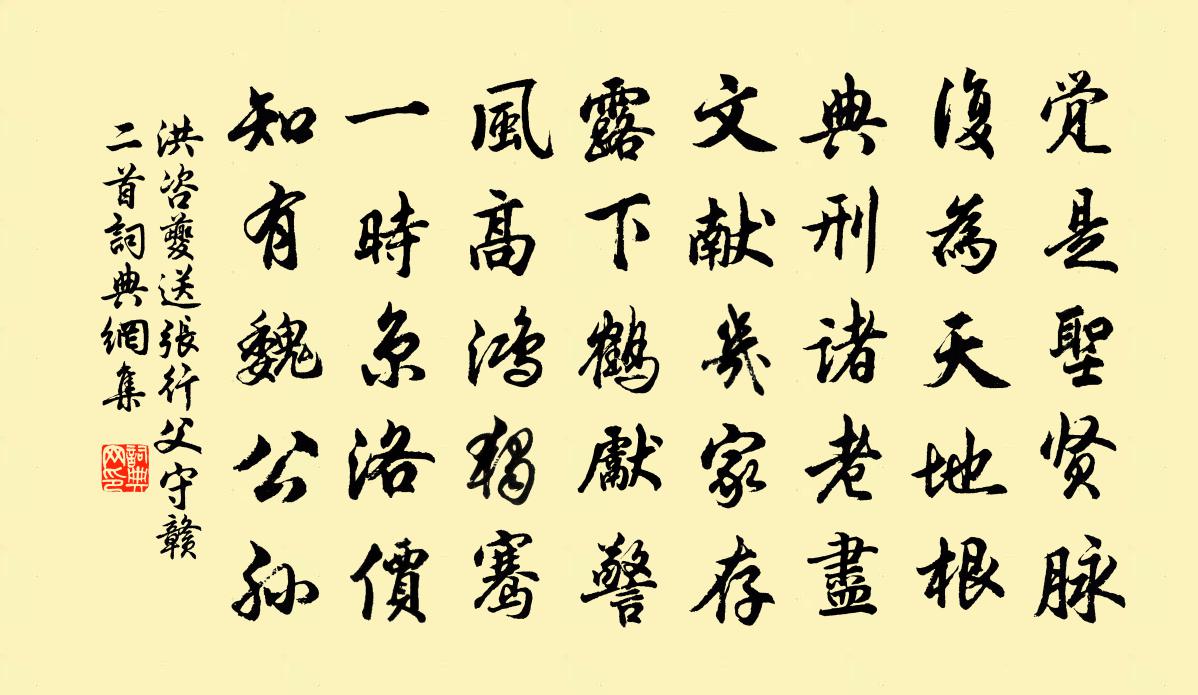 覚是聖贤脉
復為天地根
典刑诸老盡
文献幾家存
露下鶴獻警
風高鴻獨騫
一時京洛價
知有魏公孙
洪咨夔送張行父守赣
二首詞典網集
詞典
网印